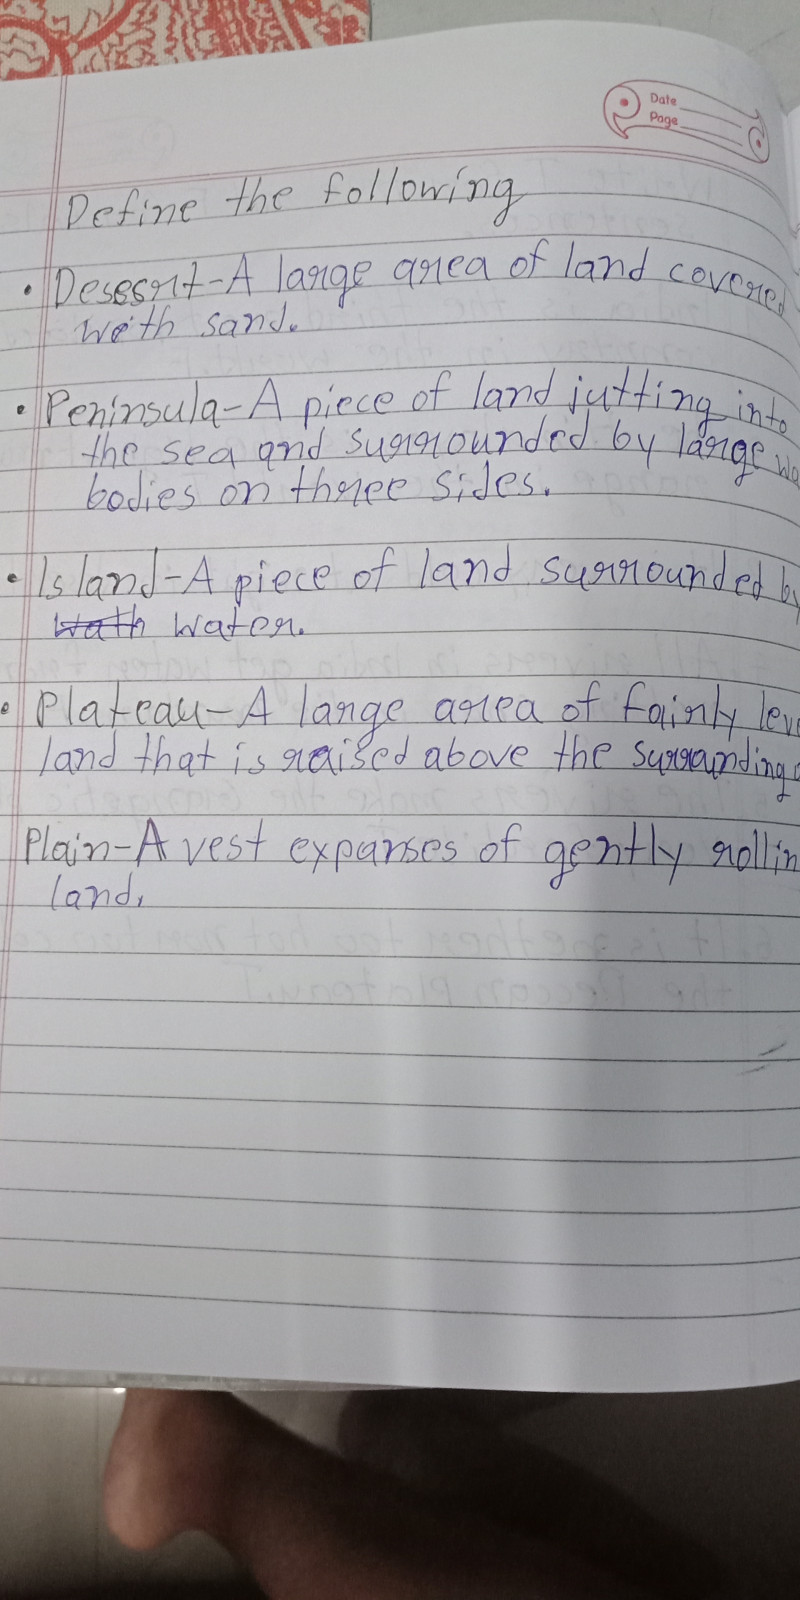 Date
Page
Define the following
• Desesrt-A large area of land covered
with sand.
• Peninsula-A piece of land jutting into
the sea and surrounded by large
bodies on three sides.
• Island-A piece of land surrounded by
water.
• Plateau-A large area of fairly
land that is raised above the
Plain-A vest expanses of gently
land.